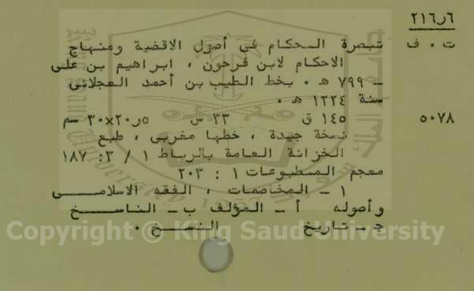 ٢١٦٫٦
ت ٠ ف تبصرة الحكام في أصول الاقضية ومنهاج
الاحكام لابن فرحون ، ابراهيم بن على
ـ ٧٩٩ هـ ٠ بخط الطيب بن أحمد العجلانى
سنة ١٢٢٤ هـ ٠
٥٠٧٨ ١٤٥ ق ٣٣ س ٣٠×٢٠٫٥ سم
نسخة جيدة ، خطها مغربى ، طبع
الخزانة العامة بالرباط ١ / ٢: ١٨٧
معجم المطبوعات ١ : ٢٠٣
١ ـ المخاصمات ، الفقه الاسلامى
وأصوله أ ـ المؤلف ب ـ الناسخ
ج ـ تاريخ النسخ ٠
Copyright © King Saud University